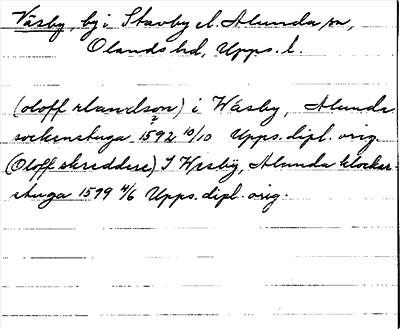 Väsby by i Stavby el. Alunda sn,
Olands hd, Upps. l.
(oloff rlandson) i Wäsby, Alunda
sockenstuga 1592 10/10 Upps. dipl. orig.
(Oloff skreddere) I Wesbÿ, Alunda klockar-
stuga 1599 4/6 Upps. dipl. orig.